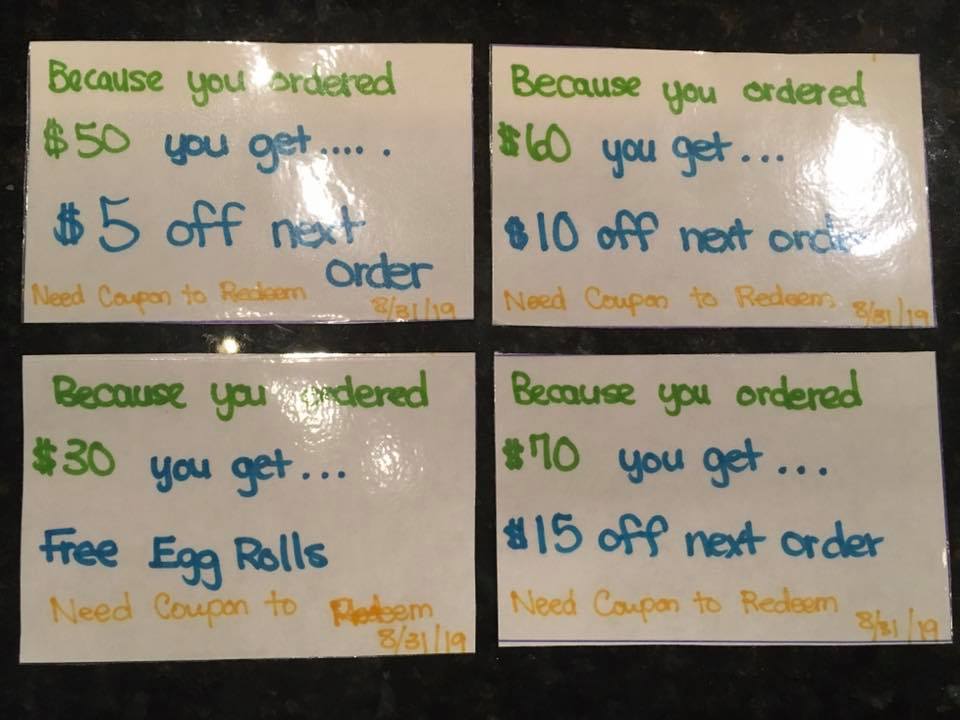 Because you ordered
$50 you get.... .
$5 off next
order
Need Coupon to Redeem
8/31/19
Because you ordered
$60 you get...
$10 off next order
Need Coupon to Redeem
8/31/19
Because you ordered
$30 you get...
Free Egg Rolls
Need Coupon to Redeem
8/31/19
Because you ordered
$70 you get...
$15 off next order
Need Coupon to Redeem
8/31/19